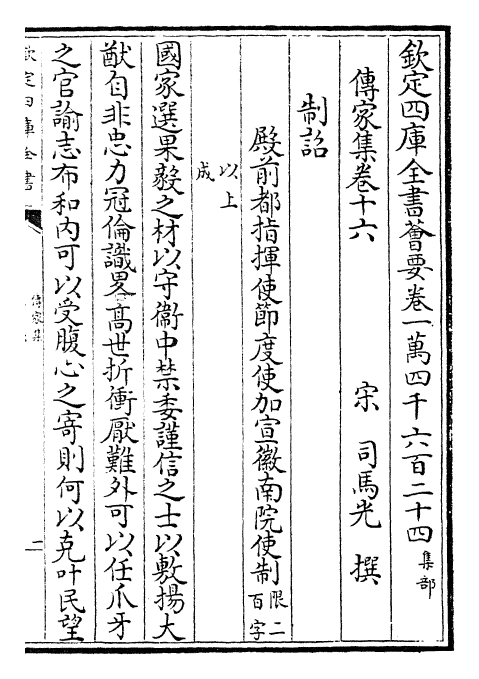 欽定四庫全書薈要卷一萬四千六百二十四 集部
傳家集卷十六 宋 司馬光 撰
制詔
殿前都指揮使節度使加宣徽南院使制 限二百字
以上成
國家選果毅之材以守衞中禁委謹信之士以敷揚大
猷自非忠力冠倫識畧高世折衝厭難外可以任爪牙
之官諭志布和内可以受腹心之寄則何以克叶民望
欽定四庫全書
傳家集
二